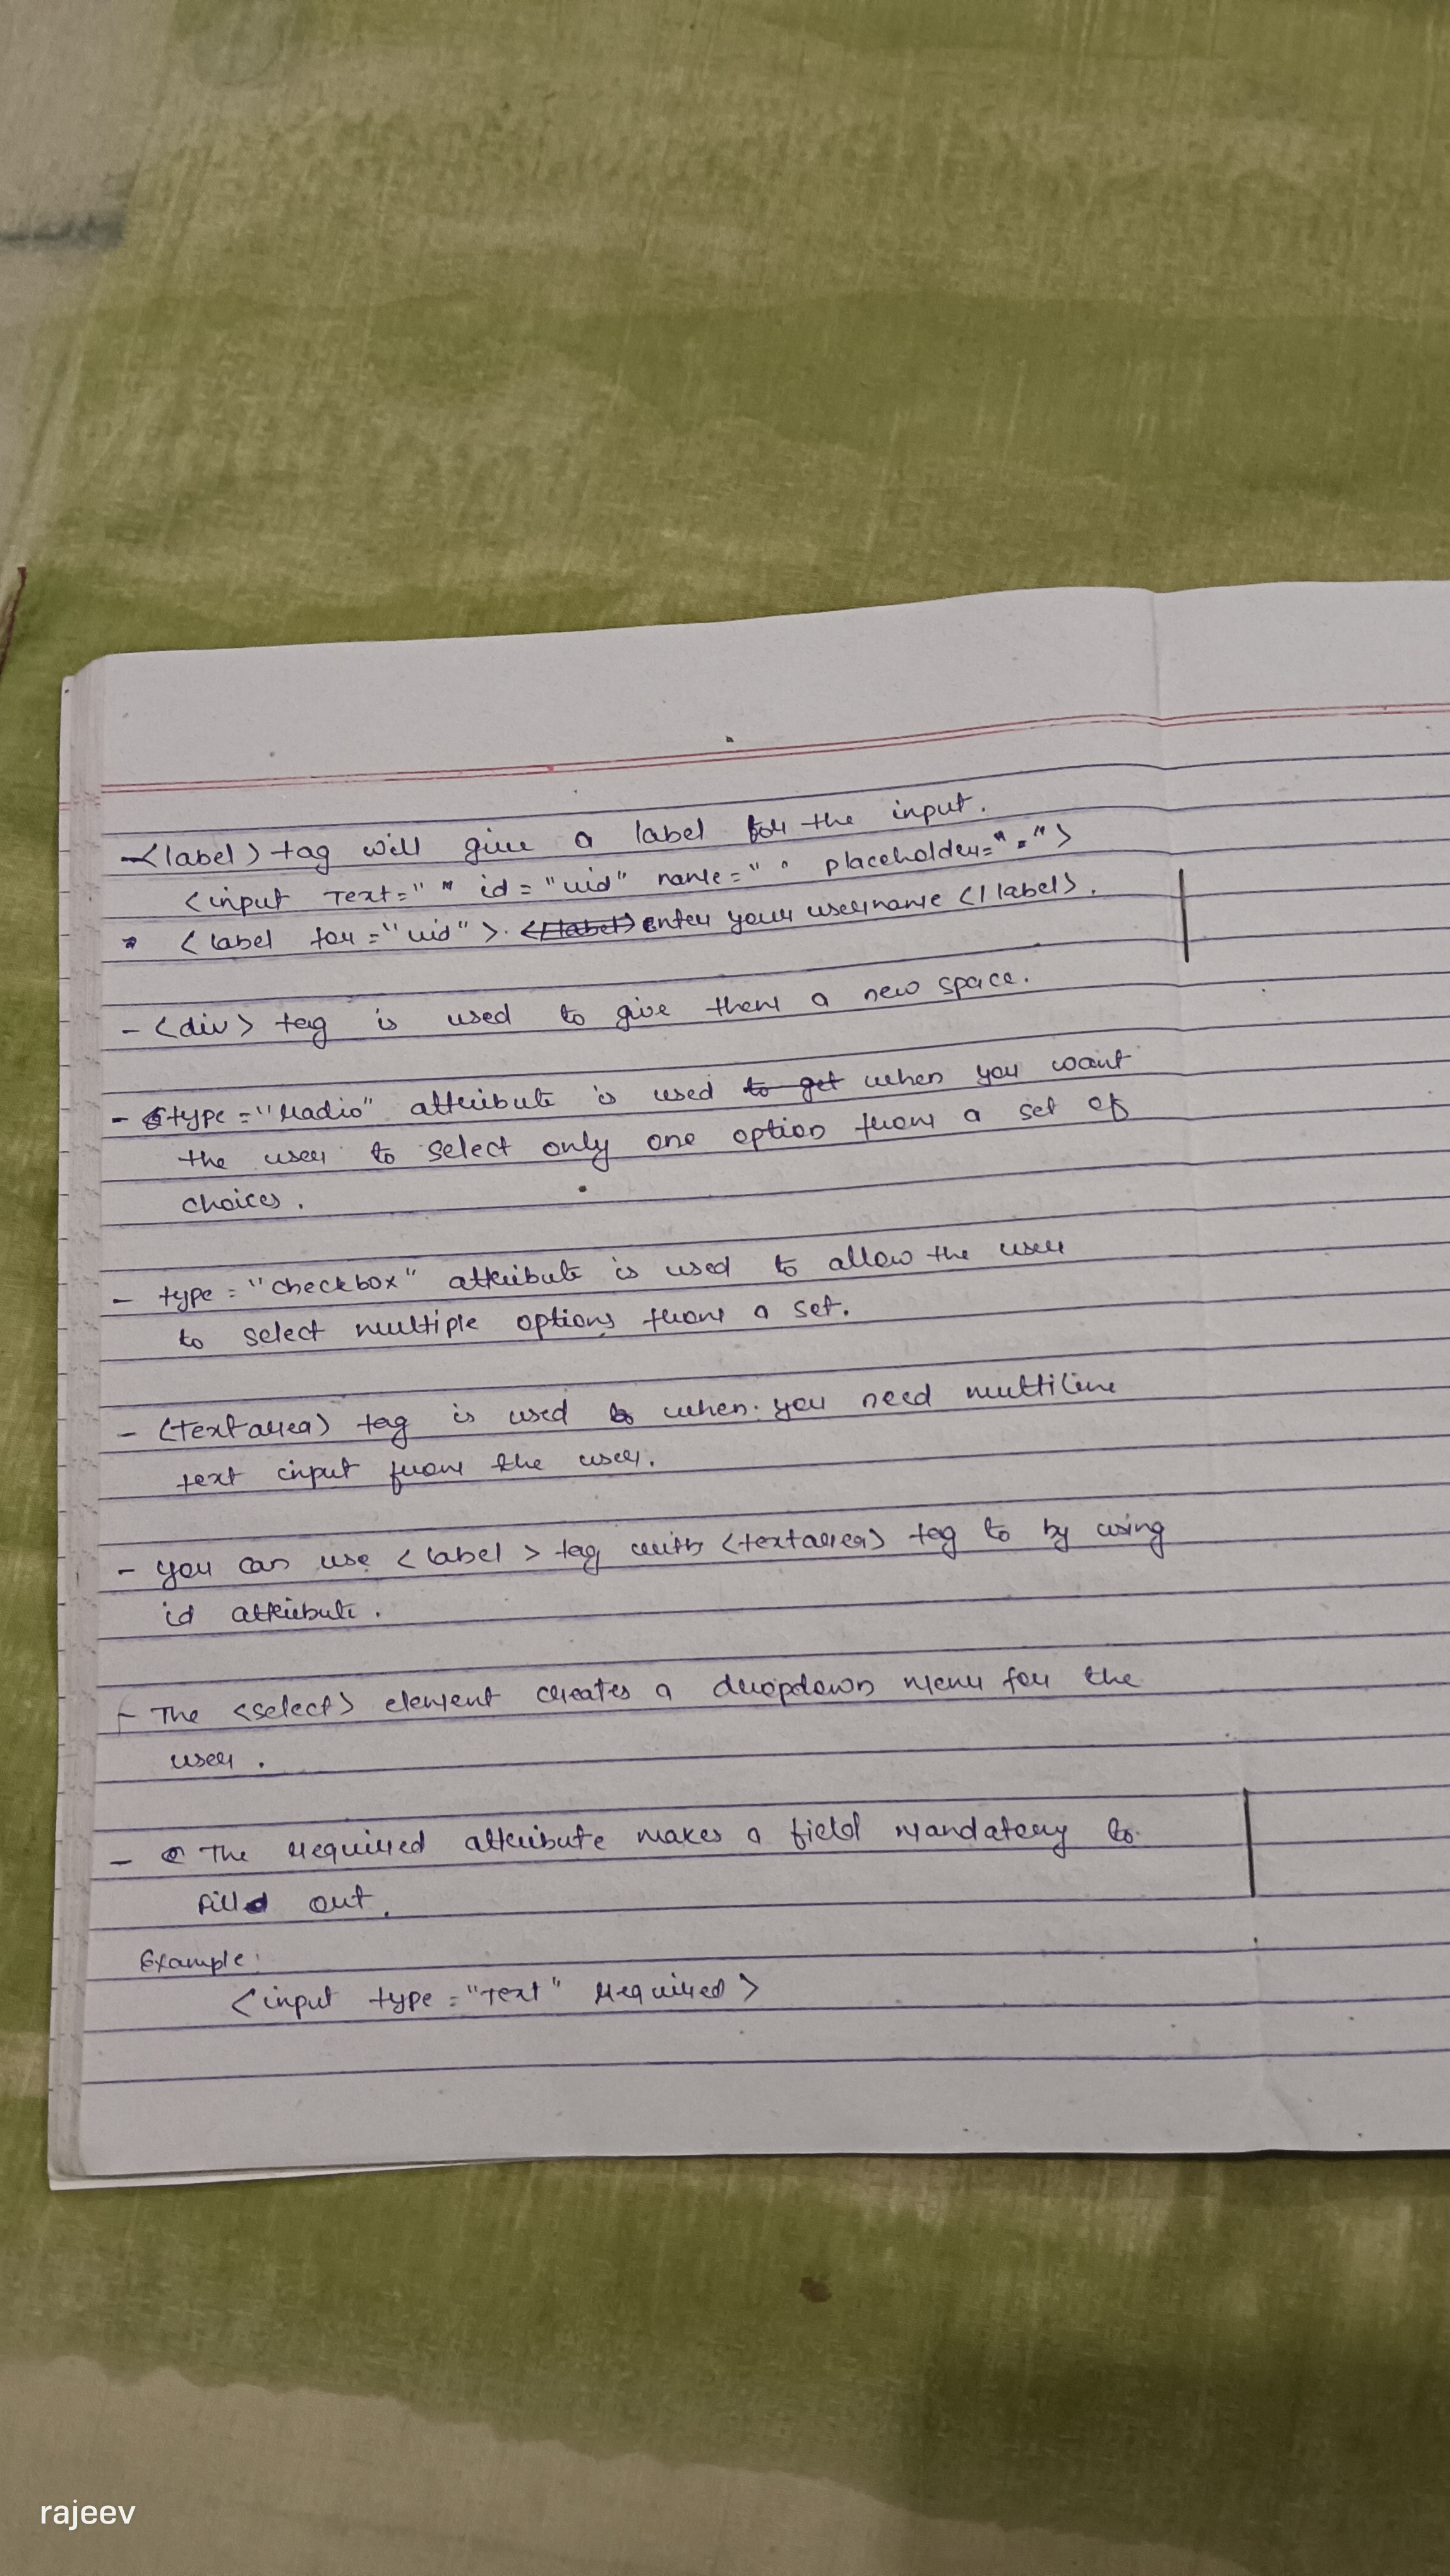 - <label> tag will give a label for the input.
<input Text=" " id = "uid" name=" " placeholder=" ">
* <label for ="uid"> enter your username </label>.
- <div> tag is used to give them a new space.
- type = "radio" attribute is used to get when you want
the user to select only one option from a set of
choices.
- type = "checkbox" attribute is used to allow the user
to select multiple options from a set.
- <textarea> tag is used when you need multiline
text input from the user.
- you can use <label> tag with <textarea> tag to by using
id attribute.
- The <select> element creates a dropdown menu for the
user.
- The required attribute makes a field mandatory to
fill out.
Example:
<input type = "text" required>
rajeev